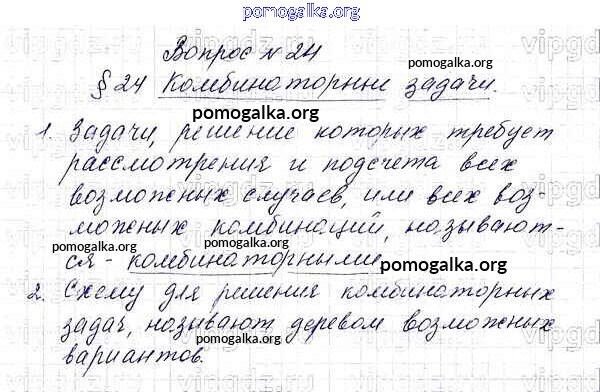 pomogalka.org
Вопрос № 24
pomogalka.org
§ 24 Комбинаторные задачи.
pomogalka.org
1. Задачи, решение которых требует
рассмотрения и подсчета всех
возможных случаев, или всех воз-
можных комбинаций, называют-
pomogalka.org
pomogalka.org
ся - комбинаторными
pomogalka.org
2. Схему для решения комбинаторных
задач, называют деревом возможных
вариантов.
pomogalka.org